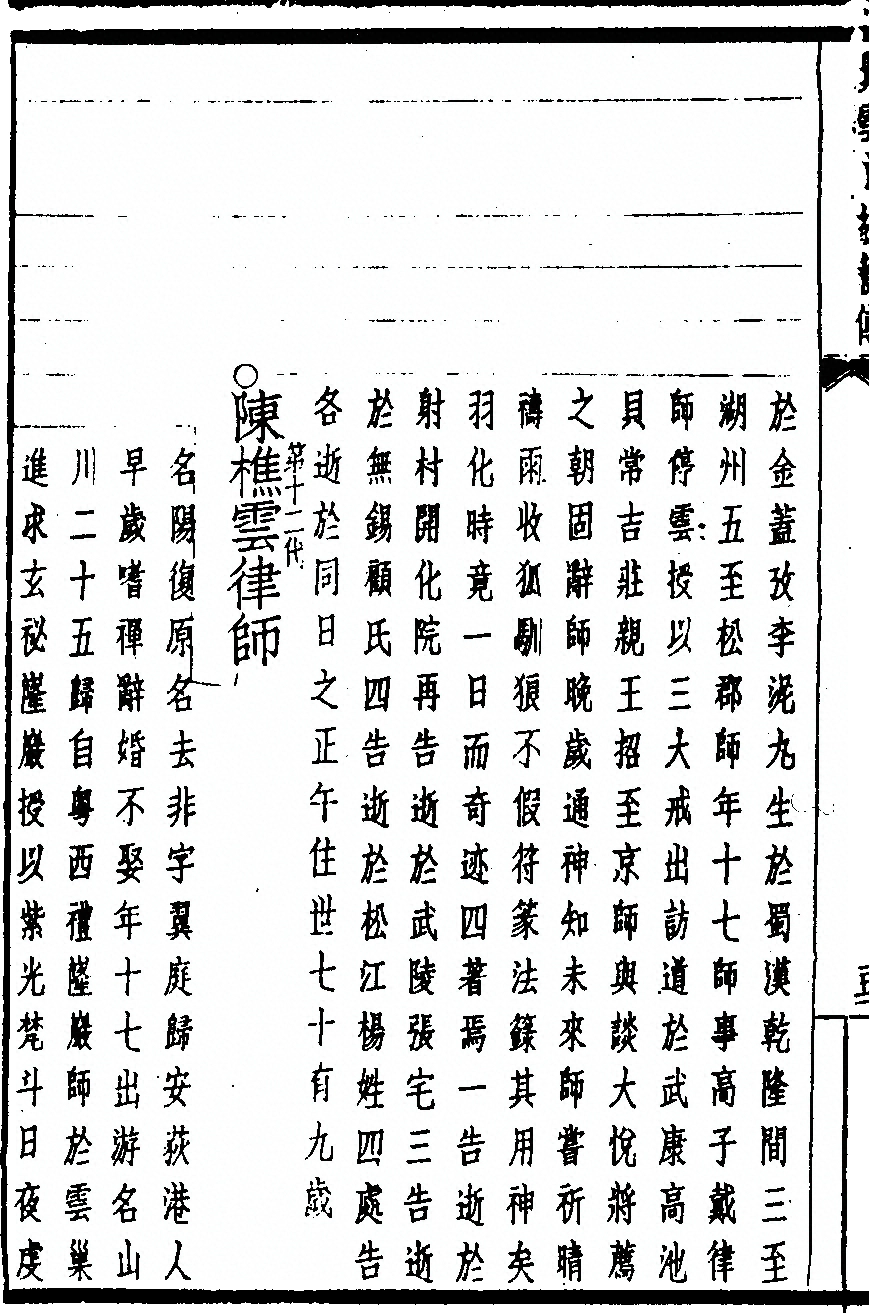 於金蓋攷李泥九生於蜀漢乾隆間三至
湖州五至松郡師年十七師事高子戴律
師停雲授以三大戒出訪道於武康高池
貝常吉莊親王招至京師與談大悅將薦
之朝固辭師晚歲通神知未來師嘗祈晴
禱雨收狐馴狼不假符篆法籙其用神矣
羽化時竟一日而奇迹四著焉一告逝於
射村開化院再告逝於武陵張宅三告逝
於無錫顧氏四告逝於松江楊姓四處告
各逝於同日之正午住世七十有九歲
第十二代
○陳樵雲律師
名陽復原名去非字翼庭歸安荻港人
早歲嗜禪辭婚不娶年十七出游名山
川二十五歸自粵西禮隆巖師於雲巢
進求玄祕隆巖授以紫光梵斗日夜虔